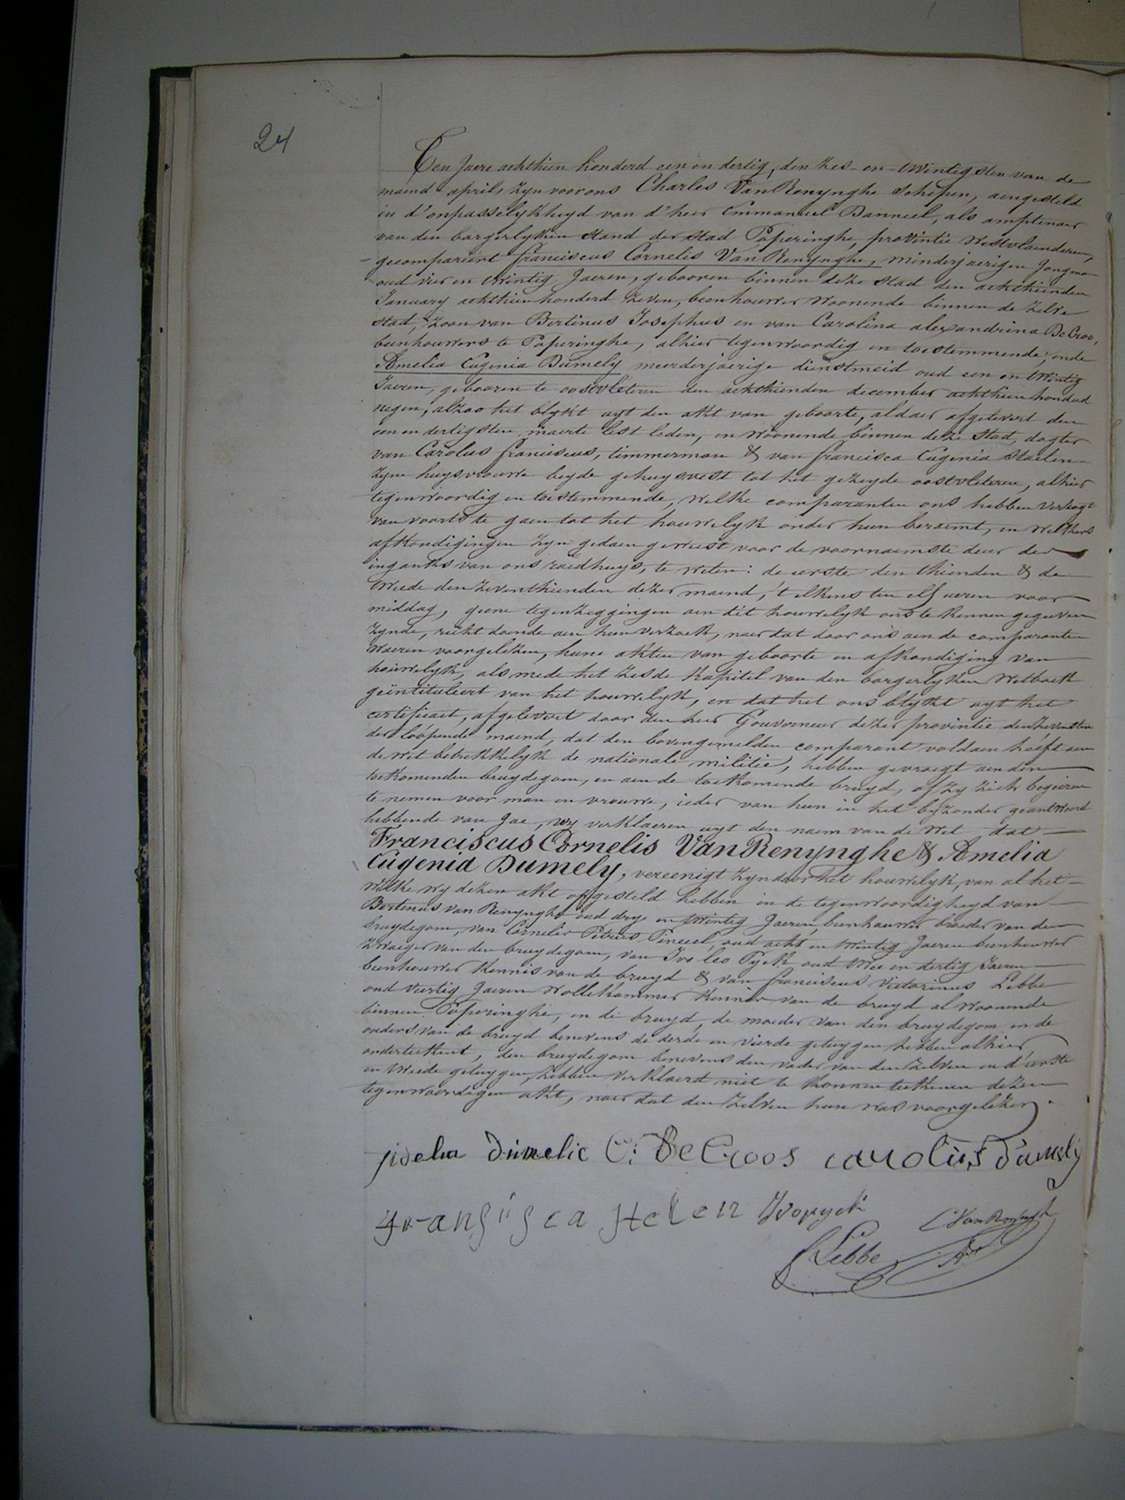 24
Ten Jaere achthien honderd een en dertig, den zes en twintigsten van de
maend april, zyn voor ons Charles VanRenynghe Schepen, aengesteld
in d'onpasselykheyd van d'heer Emmanuel Banneel, als amptenaer
van den borgerlyken stand der stad Poperinghe, provintie Westvlaenderen,
gecompareert franciscus Cornelis VanRenynghe, minderjaerigen Jongman
oud vier en twintig Jaeren, gebooren binnen deze stad den achthienden
January achthien honderd zeven, beenhouwer woonende binnen de zelve
stad, zoon van Bertinus Josephus en van Carolina alexandrina DeCroos,
beenhouwers te Poperinghe, alhier tegenwoordig en toestemmende; ende
Amelia Eugenia Dumely meerderjaerige dienstmeid oud een en twintig
Jaeren, gebooren te oostvleteren den achthienden december achthien honderd
negen, alzoo het blykt uyt den akt van geboorte, aldaer afgelevert den
een en dertigsten maerte lest leden, en woonende binnen deze Stad, dogter
van Carolus franciscus, timmerman & van francisca Eugenia Staelen
zyne huysvrouwe beyde gehuysvest tot het gezeyde oostvleteren, alhier
tegenwoordig en toestemmende, welke comparanten ons hebben verzogt
van voorts te gaen tot het houwelyk onder hun beraemt, en welkers
afkondigingen zyn gedaen geweest voor de voornaemste deur der
ingank van ons raedhuys, te weten: de eerste den thienden & de
twede den zeventhienden dezer maend, 't elkens ten elf ueren voor
middag, geene tegenzeggingen aen dit houwelyk ons te kennen gegeven
zynde, recht doende aen hun verzoek, naer dat door ons aen de comparanten
waeren voorgelezen, hune akten van geboorte en afkondiging van
houwelyk, als mede het zesde kapitel van den borgerlyken Wetboek
geïntituleert van het houwelyk, en dat het ons blykt uyt het
certificaet, afgelevert door den heer Gouverneur dezer provintie den zevensten
der loopende maend, dat den bovengemelden comparant voldaen heeft aen
de wet betrekkelyk de nationale militie, hebben gevraegt aen den
toekomenden bruydegom, en aen de toekomende bruyd, of zy zich begeeren
te nemen voor man en vrouwe, ieder van hun in het byzonder geantwoord
hebbende van Jae, wy verklaeren uyt den naem van de Wet, dat
Franciscus Cornelis VanRenynghe & Amelia
Eugenia Dumely, vereenigt zyn door het houwelyk, van al het
welke wy dezen akt opgesteld hebben in de tegenwoordigheyd van
Bertinus van Renynghe oud dry en twintig Jaeren beenhouwer broeder van den
bruydegom, van Cornelis Petrus Pineel, oud acht en twintig Jaeren beenhouwer
zwaeger van den bruydegom, van Ivo leo Pyck oud twee en dertig Jaeren
beenhouwer kennis van de bruyd & van franciscus Victorinus Lebbe
oud veertig Jaeren wollekammer kennis van de bruyd al woonende
binnen Poperinghe, en de bruyd, de moeder van den bruydegom en de
ouders van de bruyd benevens de derde en vierde getuygen hebben alhier
onderteekent, den bruydegom benevens den vader van den zelven en d'eerste
en twede getuygen, hebben verklaerd niet te konnen teekenen dezen
tegenwoordigen akt, naer dat den zelven hun was voorgelezen.
Dumelie C: DeCroos carolus Dumely
Fransisca Stelen Ivo pyck
C VanRenynghe
Lebbe